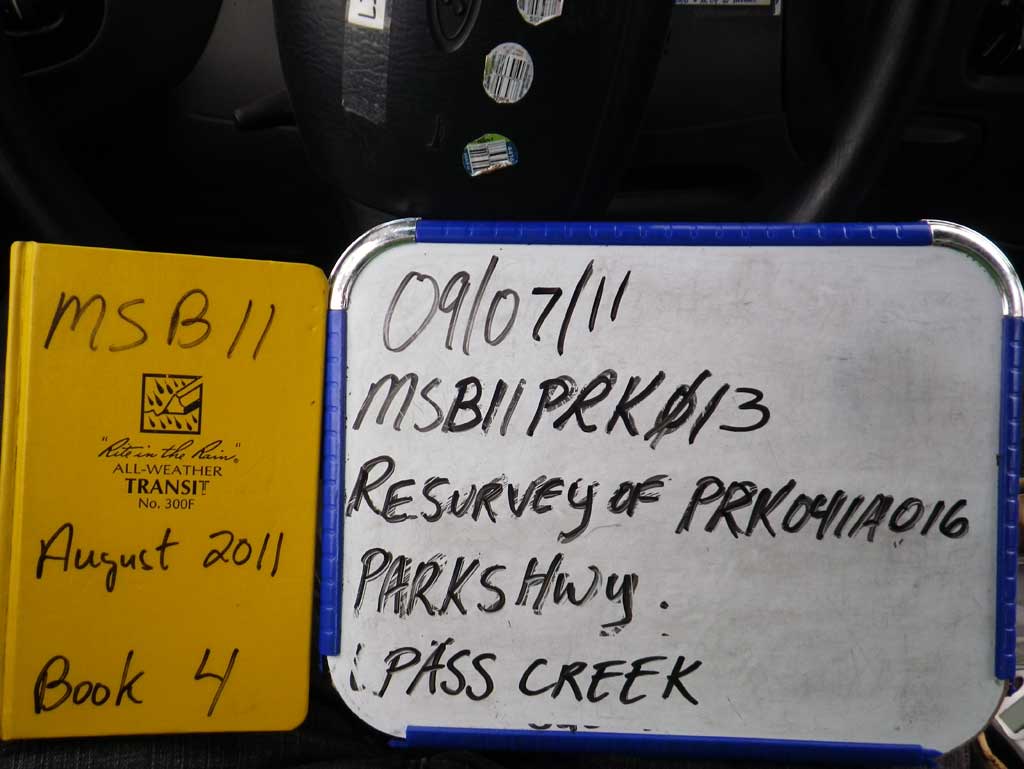 MSB11
"Rite in the Rain"®
ALL-WEATHER
TRANSIT
No. 300F
August 2011
Book 4
09/07/11
MSB11PRKØ13
RESURVEY OF PRK041A016
PARKS HWY.
PASS CREEK